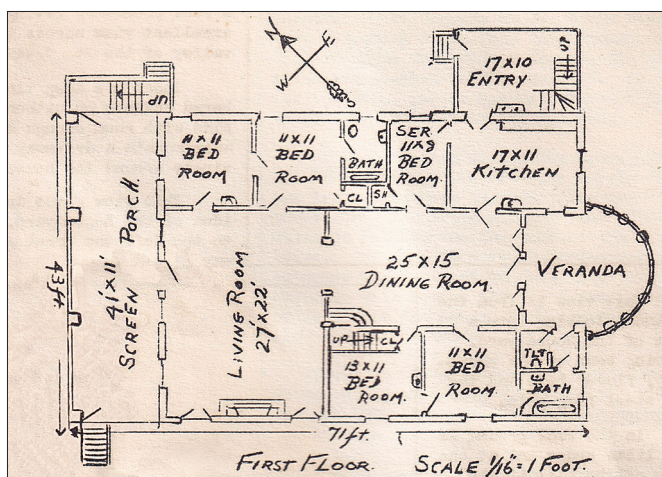 N
E
W
17X10
ENTRY
UP
UP
11X11
BED
ROOM
11X11
BED
ROOM
BATH
SER
11X8
BED
ROOM.
17X11
KITCHEN
CL
SH
43ft.
41'X11'
SCREEN PORCH.
LIVING ROOM
27X22'
25X15
DINING ROOM.
VERANDA
UP
CL
13X11
BED
ROOM.
11X11
BED
ROOM
TLT
BATH
71ft.
FIRST FLOOR.
SCALE 1/16"=1 FOOT.